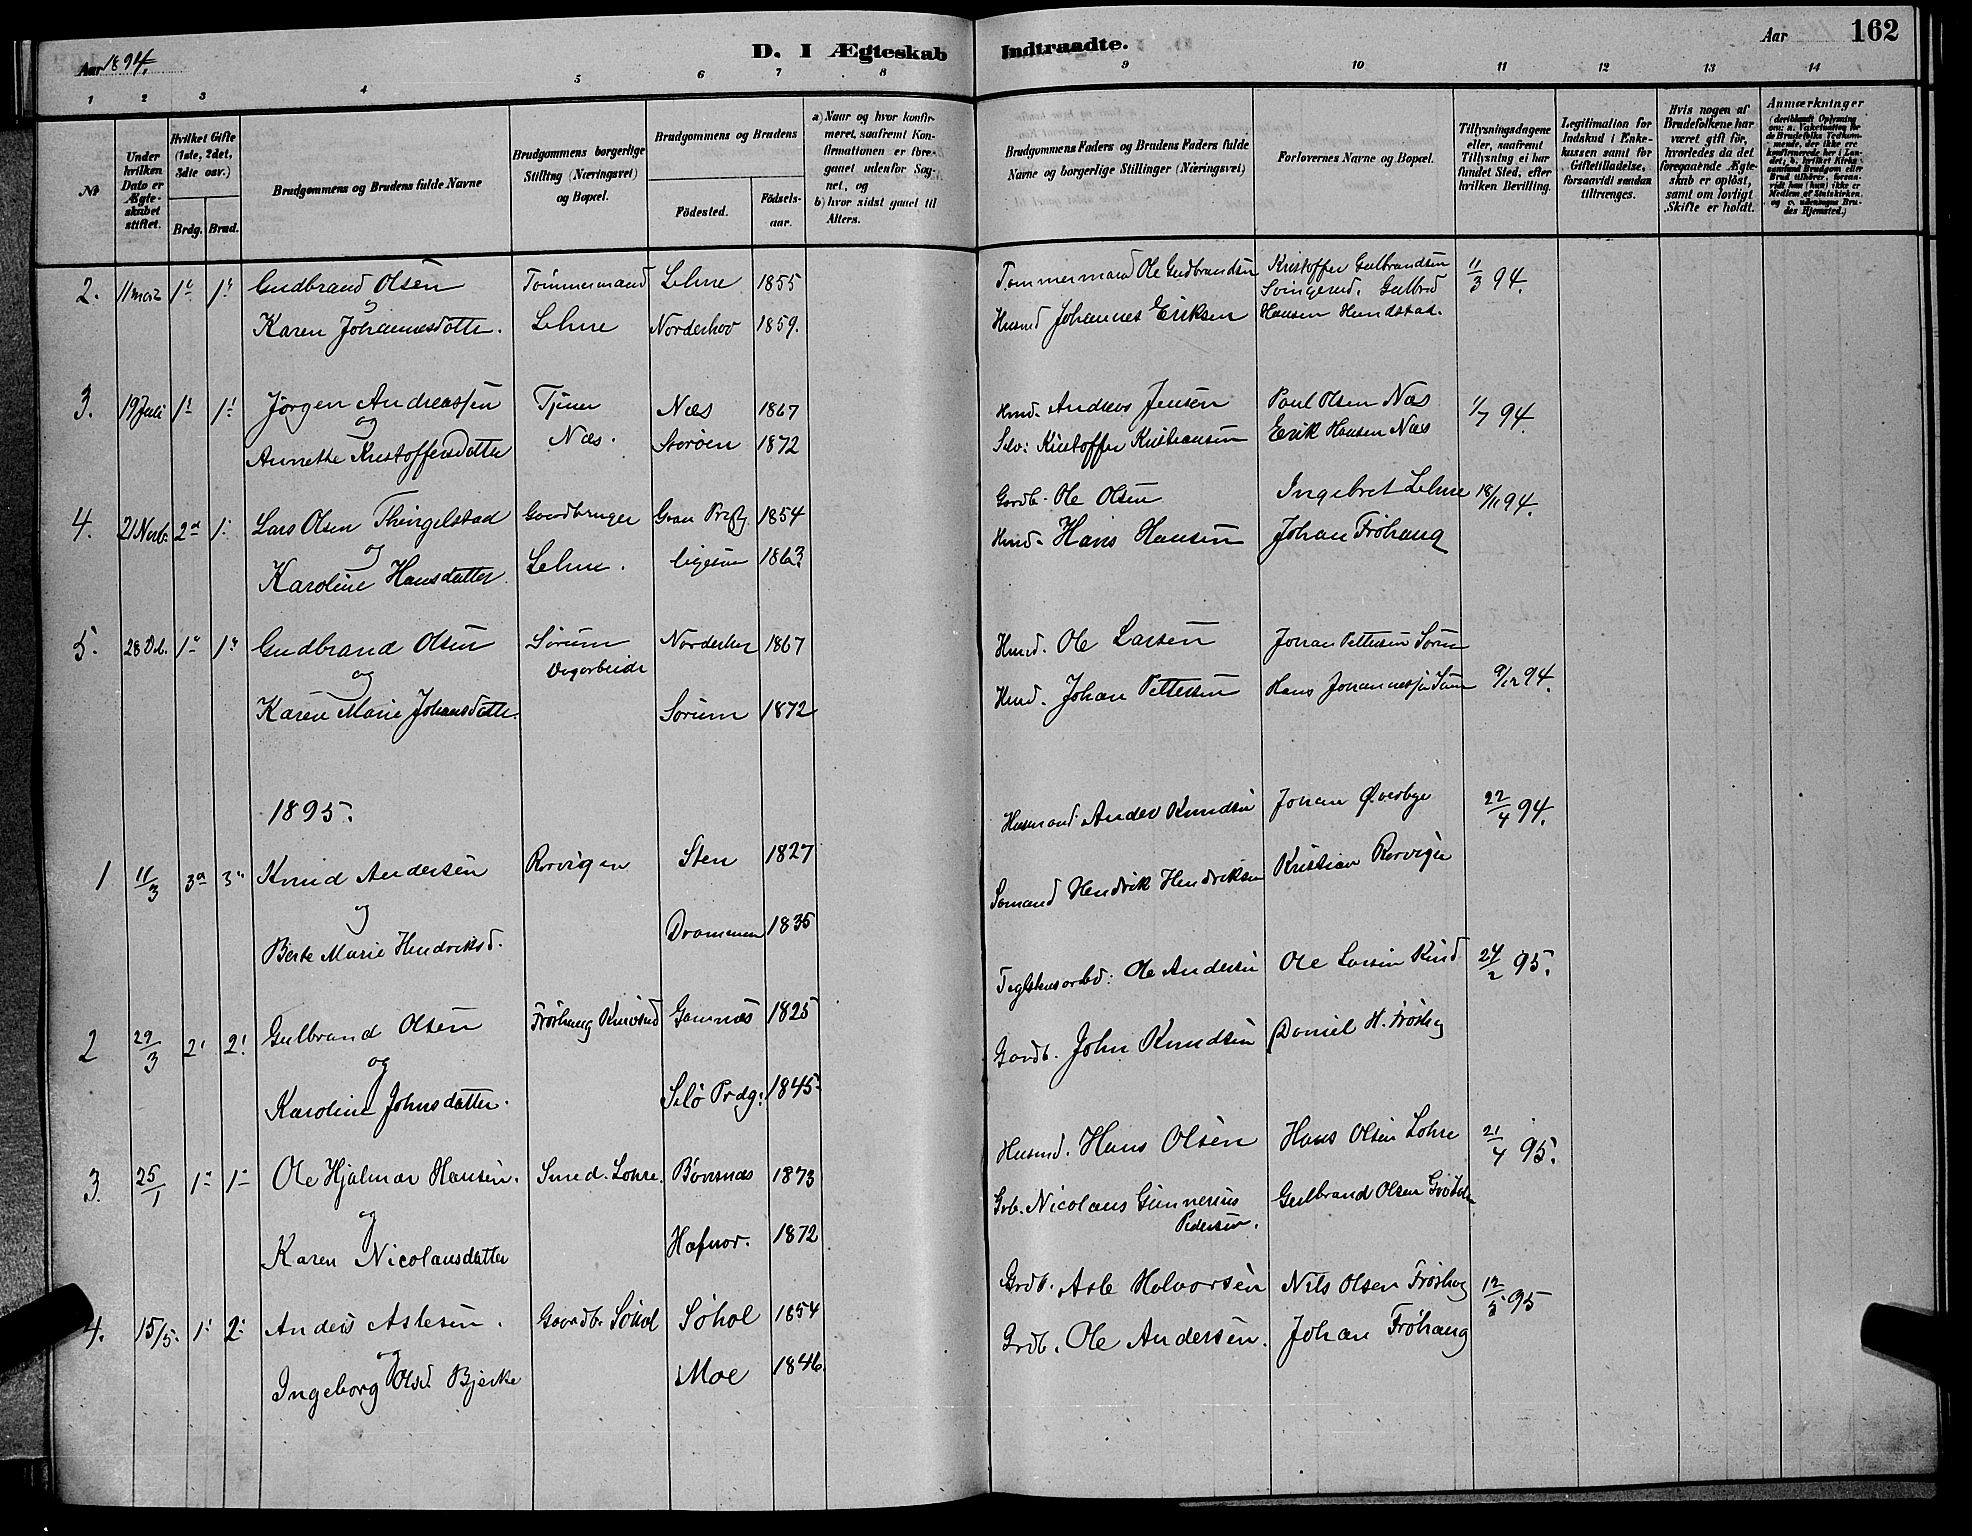 Aar 1894.
D. I Ægteskab Indtraadte.
Aar
162
1 2 3 4 5 6 7 8 9 10 11 12 13 14
№
Under hvilken Dato er Ægteskabet stiftet.
Hvilket Gifte (1ste, 2det, 3die osv.)
Brdg. Brud.
Brudgommens og Brudens fulde Navne
Brudgommens borgerlige Stilling (Næringsvei) og Bopæl.
Brudgommens og Brudens
Fødested.
Fødselsaar.
a) Naar og hvor konfirmeret, saafremt Konfirmationen er foregaaet udenfor Sognet, og
b) hvor sidst gaaet til Alters.
Brudgommens Faders og Brudens Faders fulde Navne og borgerlige Stillinger (Næringsvei)
Forlovernes Navne og Bopæl.
Tillysningsdagene eller, saafremt Tillysning ei har fundet Sted, efter hvilken Bevilling.
Legitimation for Indskud i Enkekassen samt for Giftetilladelse, forsaavidt saadan tiltrænges.
Hvis nogen af Brudefolkene har været gift før, hvorledes da det foregaaende Ægteskab er opløst, samt om lovligt Skifte er holdt.
Anmærkninger
2. 11 marz 1 1 Gudbrand Olsen Tømmermand Lehne 1855 Tømmermand Ole Gudbrandsen Kristoffer Gulbrandsen 11/3 94.
og Svingerud. Gulbrd
Karen Johannesdatter. Lehne Norderhov 1859. Husmd Johannes Eriksen Hansen Hundstad.
3. 19 Juli 1 1 Jørgen Andreassen Tjener Næs 1867 Hmd. Andreas Jensen Poul Olsen Næs 1/7 94.
og
Annette Kristoffersdatter Næs. Storøen 1872 Selv: Kristoffer Kristiansen Erik Hansen Næs
4. 21 Novb. 2 1 Lars Olsen Thingelstad Gaardbruger Gran Prstg 1854 Gardb. Ole Olsen Ingebret Lehne 18/11 94.
og
Karoline Hansdatter Lehne. ligesaa 1863 Hmd. Hans Hansen Johan Frøhaug
5. 28 Db. 1 1 Gudbrand Olsen Sørum Norderhov 1867 Husmd. Ole Larsen Johan Pettersen Sørum
og Dagarbeider
Karen Marie Johansdatter. Sørum 1872 Hmd. Johan Pettersen Hans Johannessen 9/12 94.
1895.
1 11/3 3 3 Knud Andersen Rørvigen Sten 1827 Husmand Anders Knudsen Johan Øverbye 22/4 94.
og
Berte Marie Hendriksd. Drammen 1835 Sømand Hendrik Hendriksen Kristian Rørvigen
2 29/3 2 2 Gulbrand Olsen Frøshaug Gomnæs 1825 Ole Andersen Ole Larsen 24/2 95.
og
Karoline Johnsdatter. Prdg: 1845 Gardb. John Knudsen Daniel H. Frøshg
3. 25/1 1 1 Ole Hjalmar Hansen. Smed. Lohre. Bønsnæs 1873 Husmd. Hans Olsen Hans Olsen Lohre 21/4 95.
og
Karen Nicolausdatter Hafnor. 1872 Grb. Nicolaus Gunnerius Pedersen. Gulbrand Olsen
4. 15/5. 1 2 Anders Aslesen. Gaardb. Søhol Søhol 1854 Grdb. Asle Halvorsen Nils Olsen Frøshog 12/5 95
og
Ingeborg Olsd. Bjerke Moe 1846. Grdb. Ole Andersen. Johan Frøhaug